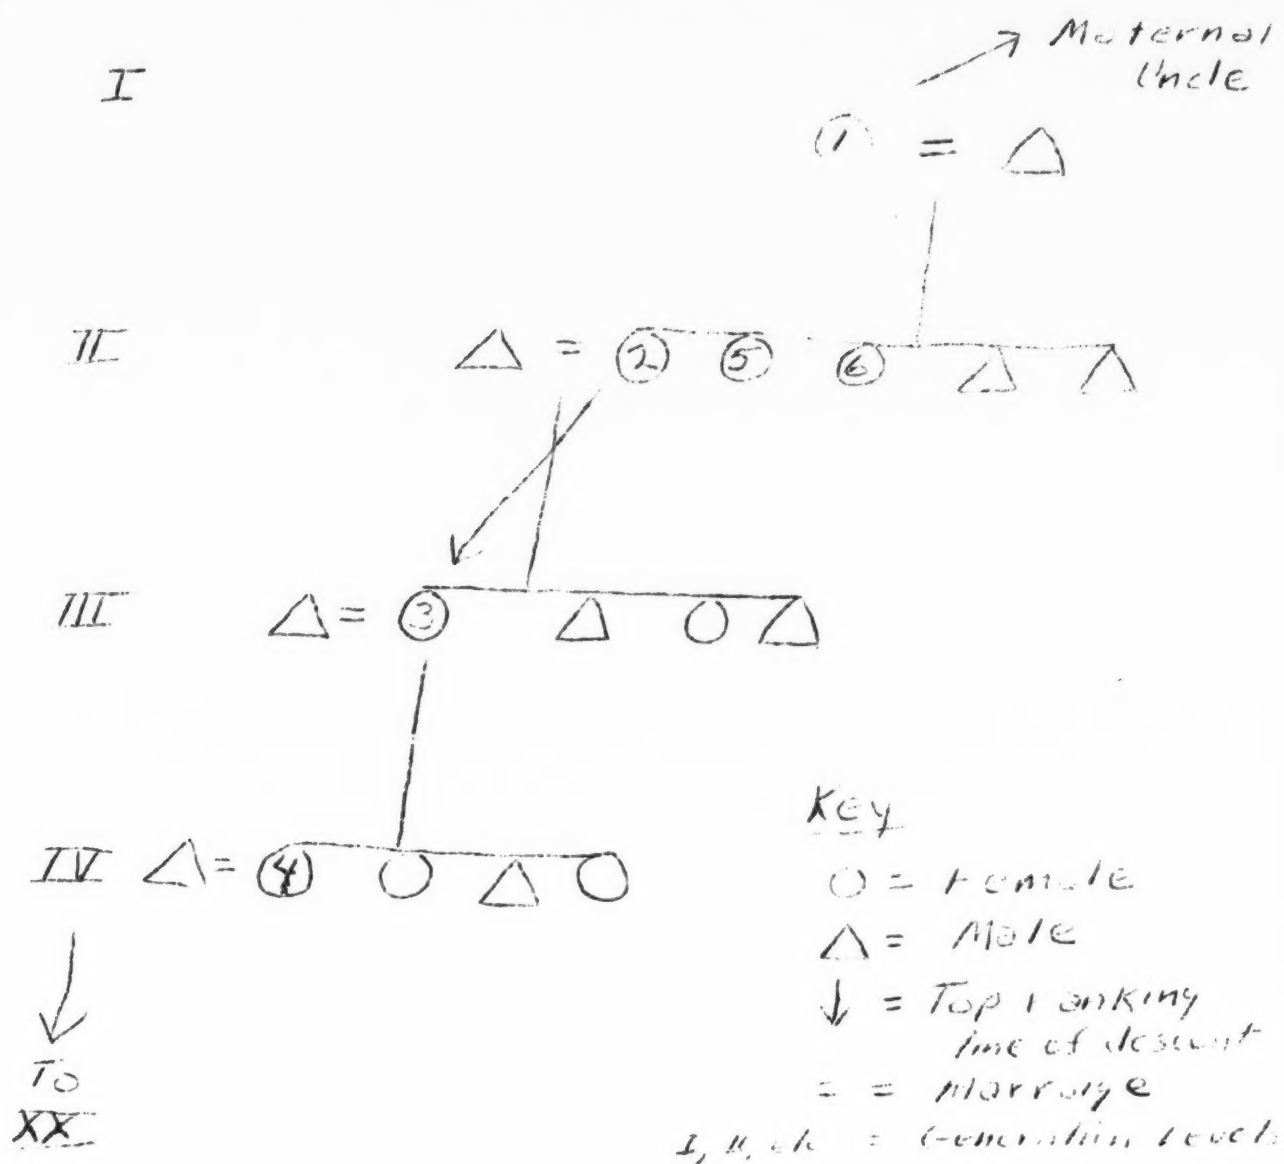 Maternal
Uncle
I
1 =
II
= 2 5 6
III
= 3
IV = 4
To
XX
Key
O = Female
△ = Male
↓ = Top ranking
line of descent
= = Marraige
I, II, etc = Generation Levels